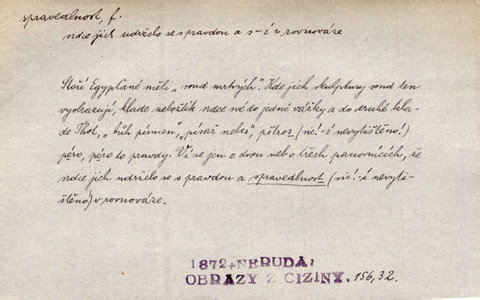 spravedlnost, f.
srdce jich udrželo se s pravdou a s-í v rovnováze
Staří Egypťané měli „soud mrtvých“. Kde jich skulptury soud ten
vyobrazují, klade nebožtík srdce své do jedné vážky a do druhé kla-
de Thot, „bůh písmen“, „písař nebes“, pštros (sic! -í nevytištěno!)
péro, péro to pravdy. Ví se jen o dvou neb o třech panovnících, že
srdce jich udrželo se s pravdou a spravedlnost (sic! -í nevyti-
štěno) v rovnováze.
1872+NERUDA:
OBRAZY Z CIZINY. 156,32.